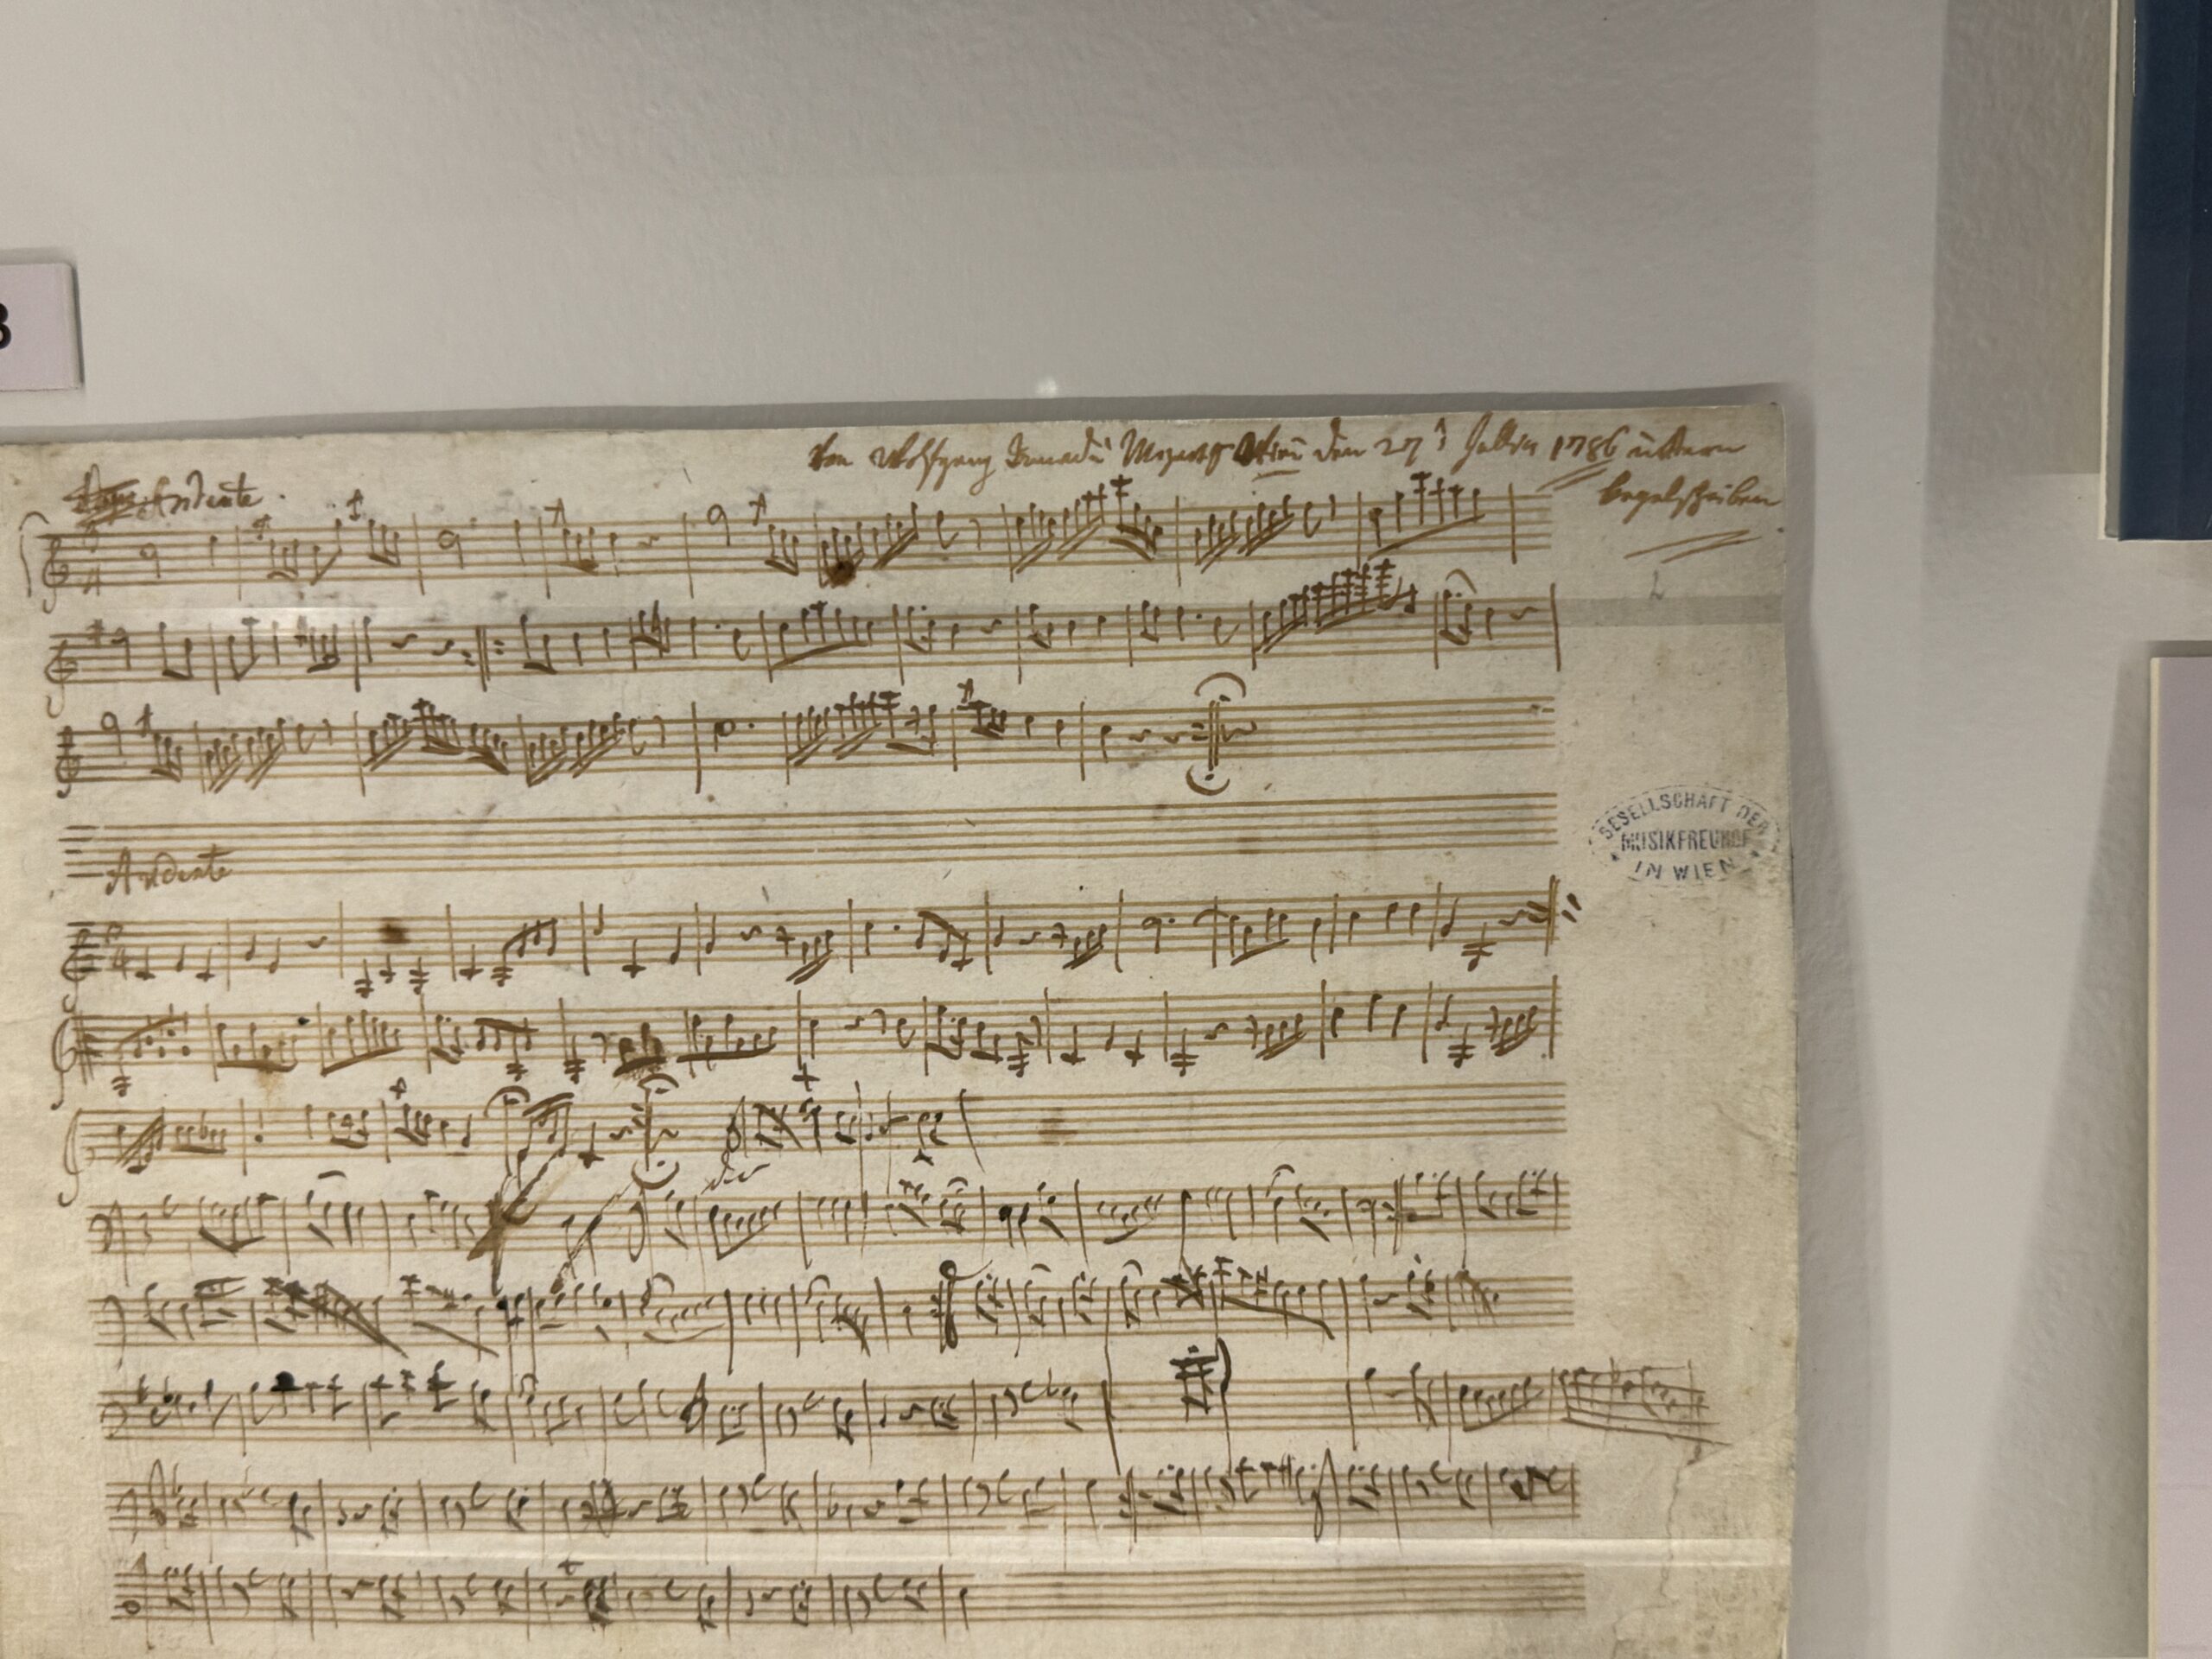 3
Von Wolfgang Amadè Mozart Wien den 27t Jullius 1786 untern
kegelscheiben.
Andante.
Andante
GESELLSCHAFT DER
MUSIKFREUNDE
IN WIEN